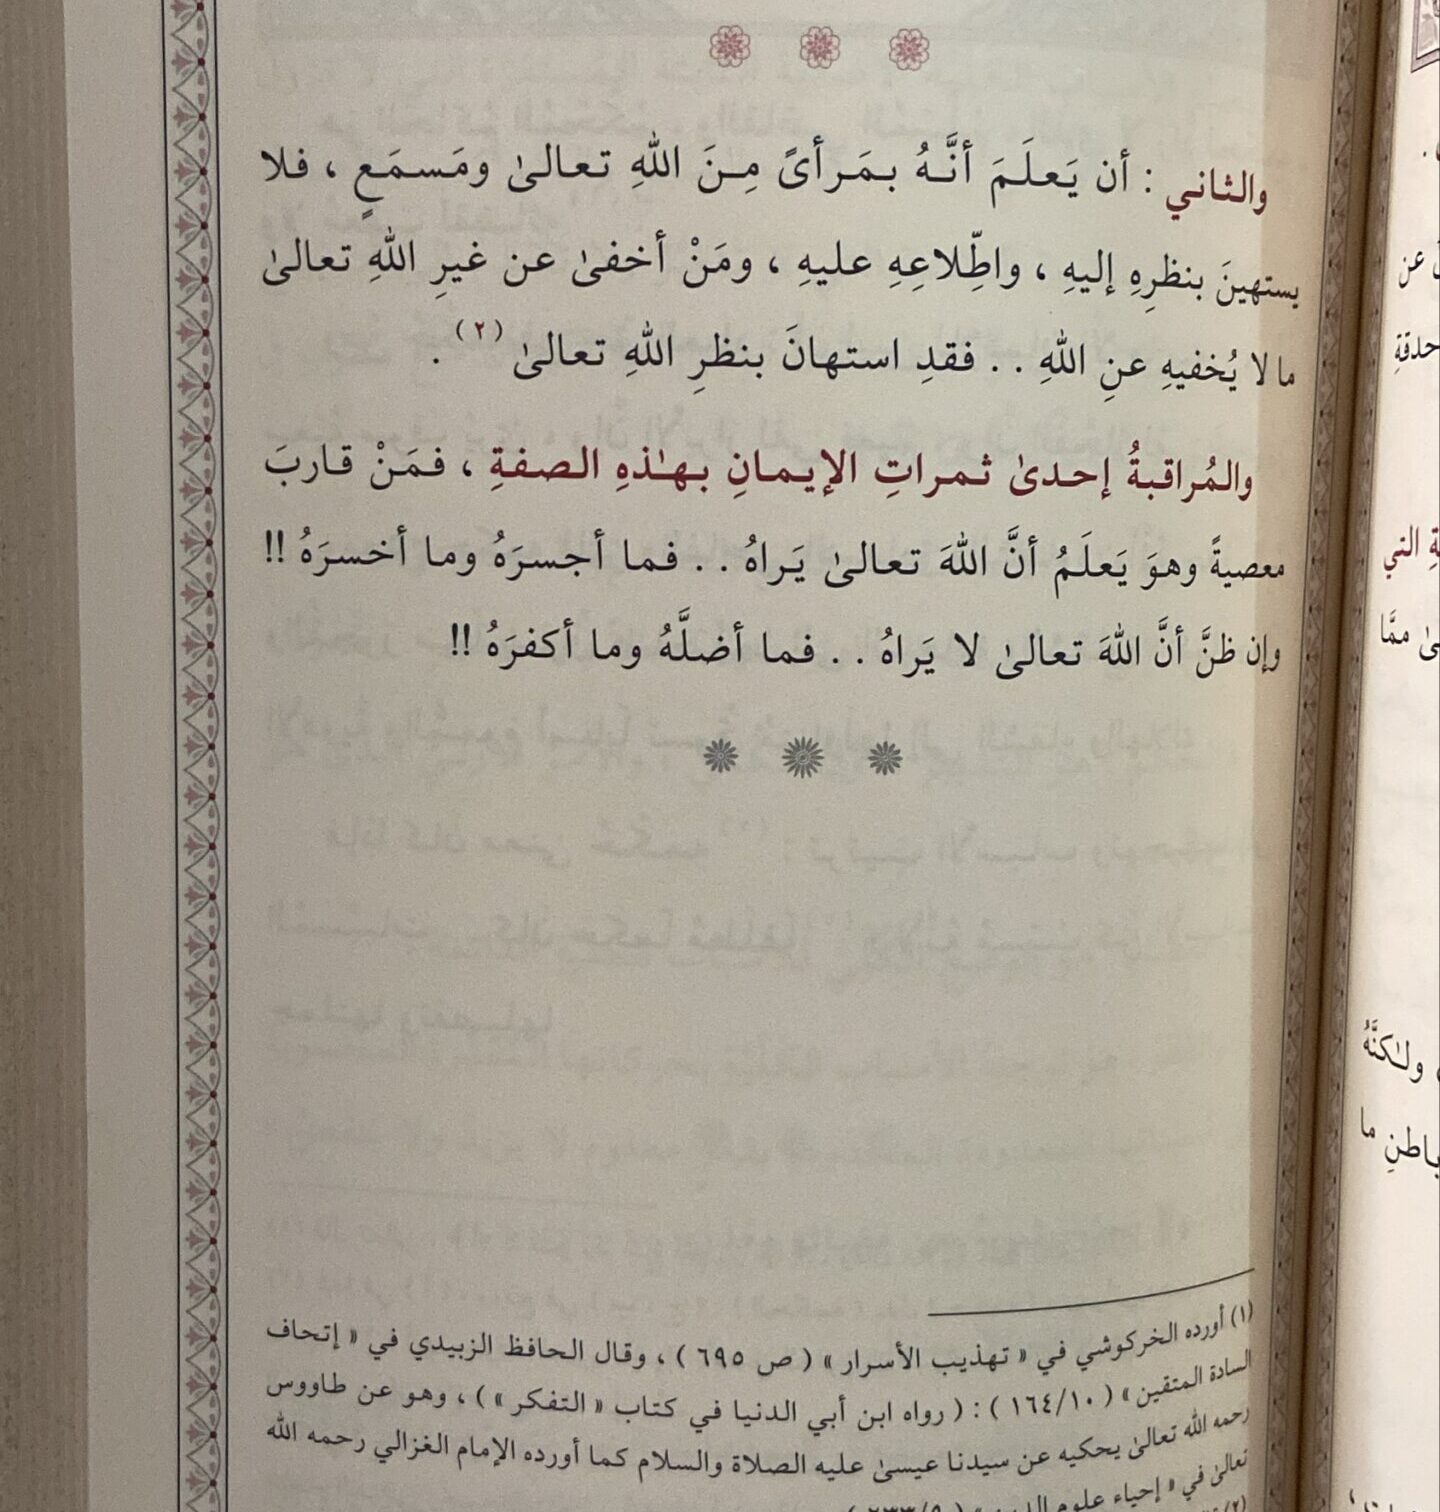 والثاني : أن يَعلَمَ أنَّهُ بمَرأىً مِنَ اللهِ تعالىٰ ومَسمَعٍ ، فلا
يستهينَ بنظرِهِ إليهِ ، واطِّلاعِهِ عليهِ ، ومَنْ أخفىٰ عن غيرِ اللهِ تعالىٰ
ما لا يُخفيهِ عنِ اللهِ . . فقدِ استهانَ بنظرِ اللهِ تعالىٰ (٢) .
والمُراقبةُ إحدىٰ ثمراتِ الإيمانِ بهٰذهِ الصفةِ ، فمَنْ قاربَ
معصيةً وهوَ يَعلَمُ أنَّ اللهَ تعالىٰ يَراهُ . . فما أجسرَهُ وما أخسرَهُ !!
وإن ظنَّ أنَّ اللهَ تعالىٰ لا يَراهُ . . فما أضلَّهُ وما أكفرَهُ !!
(١) أورده الخركوشي في « تهذيب الأسرار » ( ص ٦٩٥ ) ، وقال الحافظ الزبيدي في « إتحاف
السادة المتقين » ( ١٠/١٦٤ ) : ( رواه ابن أبي الدنيا في كتاب « التفكر » ) ، وهو عن طاووس
رحمه الله تعالىٰ يحكيه عن سيدنا عيسىٰ عليه الصلاة والسلام كما أورده الإمام الغزالي رحمه الله
تعالىٰ في « إحياء علوم الدين »
عن
حدقةِ
التي
ممَّا
ولٰكنَّهُ
ما